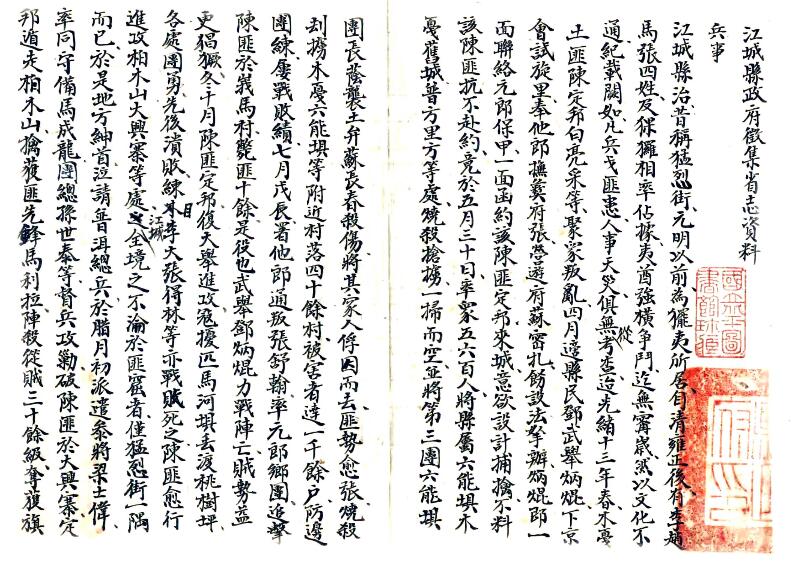 江城縣政府徵集省志資料
兵事
江城縣治昔稱猛烈街元明以前為玀夷所居自清雍正後有李趙
馬張四姓及猓玀相率佔據夷酋強橫爭鬥迄無寧歲然以文化不
通紀載闕如凡兵戈匪患人事天災俱無從考查迨光緒十三年春木戞
土匪陳定邦白亮采等聚眾叛亂四月邊縣民鄧武舉炳焜下京
會試旋里奉他郎撫彝府張營遊府蘇密札飭設法拿辦炳焜即一
面聯絡元郎保甲一面函約該陳匪定邦來城意欲設計捕擒不料
該陳匪抗不赴約竟於五月三十日率眾五六百人將縣屬六能埧木
戞舊城普方里方等處燒殺搶擄一掃而空並將第三團六能埧
團長蔭襲土弁蘇長春殺傷將其家人俘因而去匪勢愈張燒殺
刦擄木戞六能埧等附近村落四十餘村被害者達一千餘戶防邊
團練屢戰敗績七月戊長署他郎通叛張舒翰率元郎鄉團追擊
陳匪於莪馬村斃匪十餘是役也武舉鄧炳焜力戰陣亡賊勢益
更猖獗冬十月陳匪定邦復大舉進攻寇擾匹馬河埧丟渡桃樹坪
各處團勇先後潰敗練目李天張得林等亦戰死之陳匪愈行
進攻柏木山大興寨等處江城全境之不淪於匪窟者僅猛烈街一隅
而已於是地方紳首泣請普洱總兵於臘月初派遣參將梁士偉
率同守備馬成龍團總孫世泰等督兵攻勦破陳匪於大興寨定
邦遁走柏木山擒獲匪先鋒馬利拉陣殺從賊三十餘級奪獲旗
國立北平圖書館珍藏